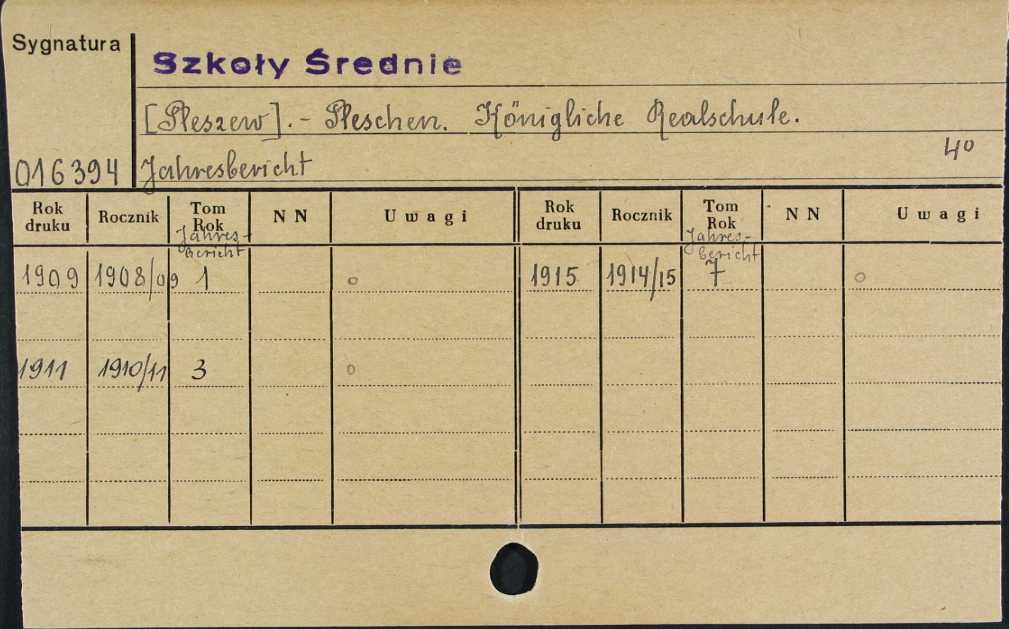 Sygnatura
Szkoły Średnie
[Pleszew].- Pleschen. Königliche Realschule.
4º
016394 Jahresbericht
Rok druku Rocznik Tom Rok Jahres-bericht N N Uwagi Rok druku Rocznik Tom Rok Jahres-bericht N N Uwagi
1909 1908/09 1 o 1915 1914/15 7 o
1911 1910/11 3 o